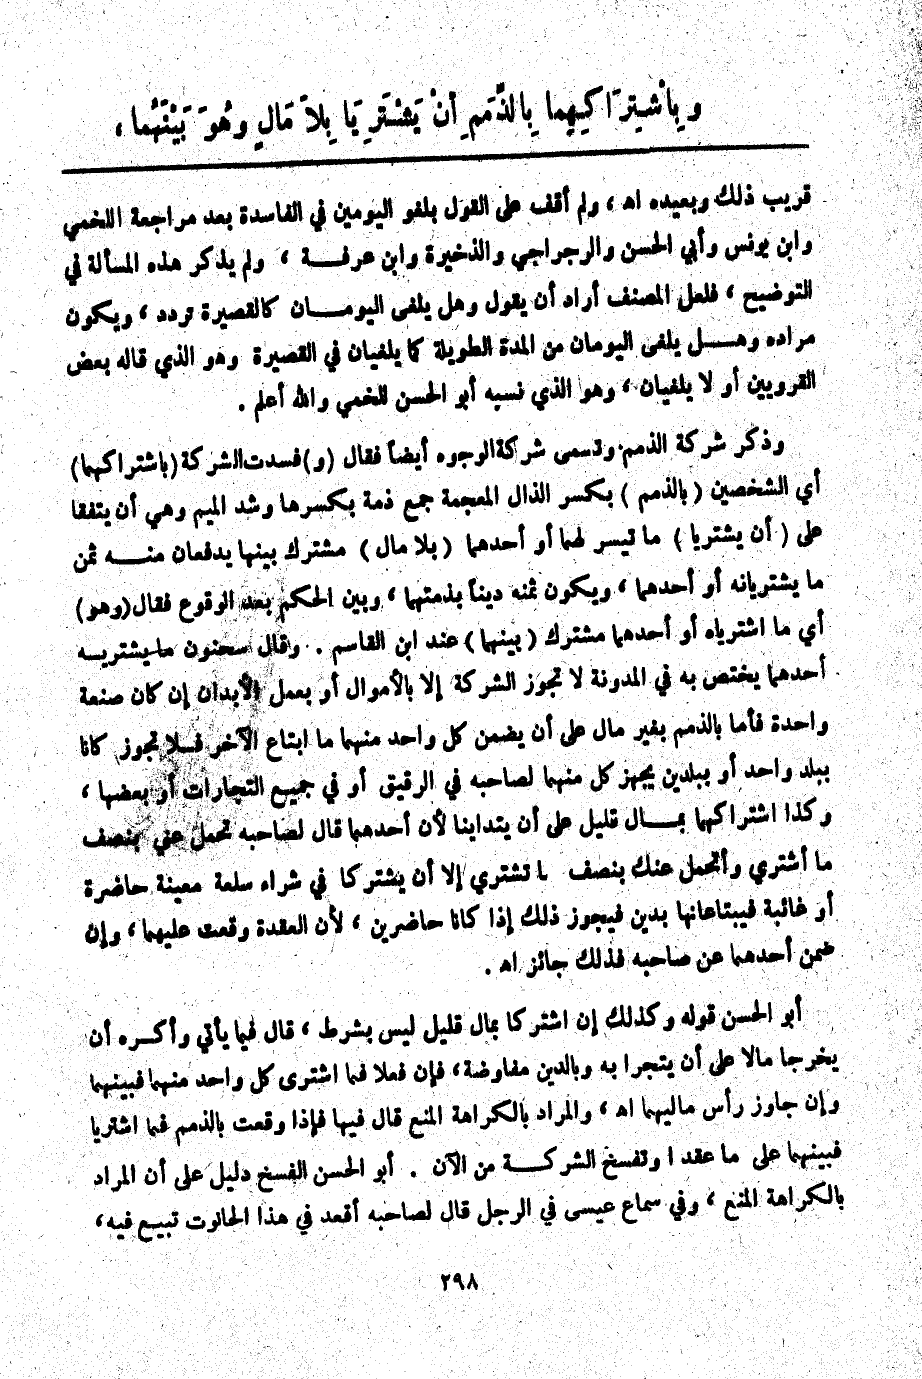 وَبِاشْتِرَاكِهِما بِالذِّمَمِ أَنْ يَشْتَرِيَا بِلاَ مَالٍ وهُوَ بَيْنَهُما ،
قريب ذلك وبعيده اه ، ولم أقف على القول بلغو اليومين في الفاسدة بعد مراجعة اللخمي
وابن يونس وأبي الحسن والرجراجي والذخيرة وابن عرفة ، ولم يذكر هذه المسألة في
التوضيح ، فلعل المصنف أراد أن يقول وهل يلغى اليومان كالقصيرة تردد ، ويكون
مراده وهل يلغى اليومان من المدة الطويلة كما يلغيان في القصيرة وهو الذي قاله بعض
القرويين أو لا يلغيان ، وهو الذي نسبه أبو الحسن للخمي والله أعلم .
وذكر شركة الذمم وتسمى شركة الوجوه أيضاً فقال (و) فسدت الشركة (باشتراكهما)
أي الشخصين ( بالذمم ) بكسر الذال المعجمة جمع ذمة بكسرها وشد الميم وهي أن يتفقا
على ( أن يشتريا ) ما تيسر لهما أو أحدهما ( بلا مال ) مشترك بينهما يدفعان منه ثمن
ما يشتريانه أو أحدهما ، ويكون ثمنه ديناً بذمتهما ، وبين الحكم بعد الوقوع فقال (وهو)
أي ما اشترياه أو أحدهما مشترك ( بينهما ) عند ابن القاسم . وقال سحنون ما يشتريه
أحدهما يختص به في المدونة لا تجوز الشركة إلا بالأموال أو بعمل الأبدان إن كان صنعة
واحدة فأما بالذمم بغير مال على أن يضمن كل واحد منهما ما ابتاع الآخر فلا تجوز كانا
ببلد واحد أو ببلدين يجهز كل منهما لصاحبه في الرقيق أو في جميع التجارات أو بعضها ،
وكذا اشتراكهما بمال قليل على أن يتداينا لأن أحدهما قال لصاحبه تحمل عني بنصف
ما أشتري وأتحمل عنك بنصف ما تشتري إلا أن يشتركا في شراء سلعة معينة حاضرة
أو غائبة فيبتاعانها بدين فيجوز ذلك إذا كانا حاضرين ، لأن العقدة وقعت عليهما ، وإن
ضمن أحدهما عن صاحبه فذلك جائز اه .
أبو الحسن قوله وكذلك إن اشتركا بمال قليل ليس بشرط ، قال فيما يأتي وأكره أن
يخرجا مالا على أن يتجرا به وبالدين مفاوضة ، فإن فعلا فما اشترى كل واحد منهما فبينهما
وإن جاوز رأس ماليهما اه ، والمراد بالكراهة المنع قال فيها فإذا وقعت بالذمم فما اشتريا
فبينهما على ما عقدا وتفسخ الشركة من الآن . أبو الحسن الفسخ دليل على أن المراد
بالكراهة المنع ، وفي سماع عيسى في الرجل قال لصاحبه أقعد في هذا الحانوت تبيع فيه ،
٢٩٨